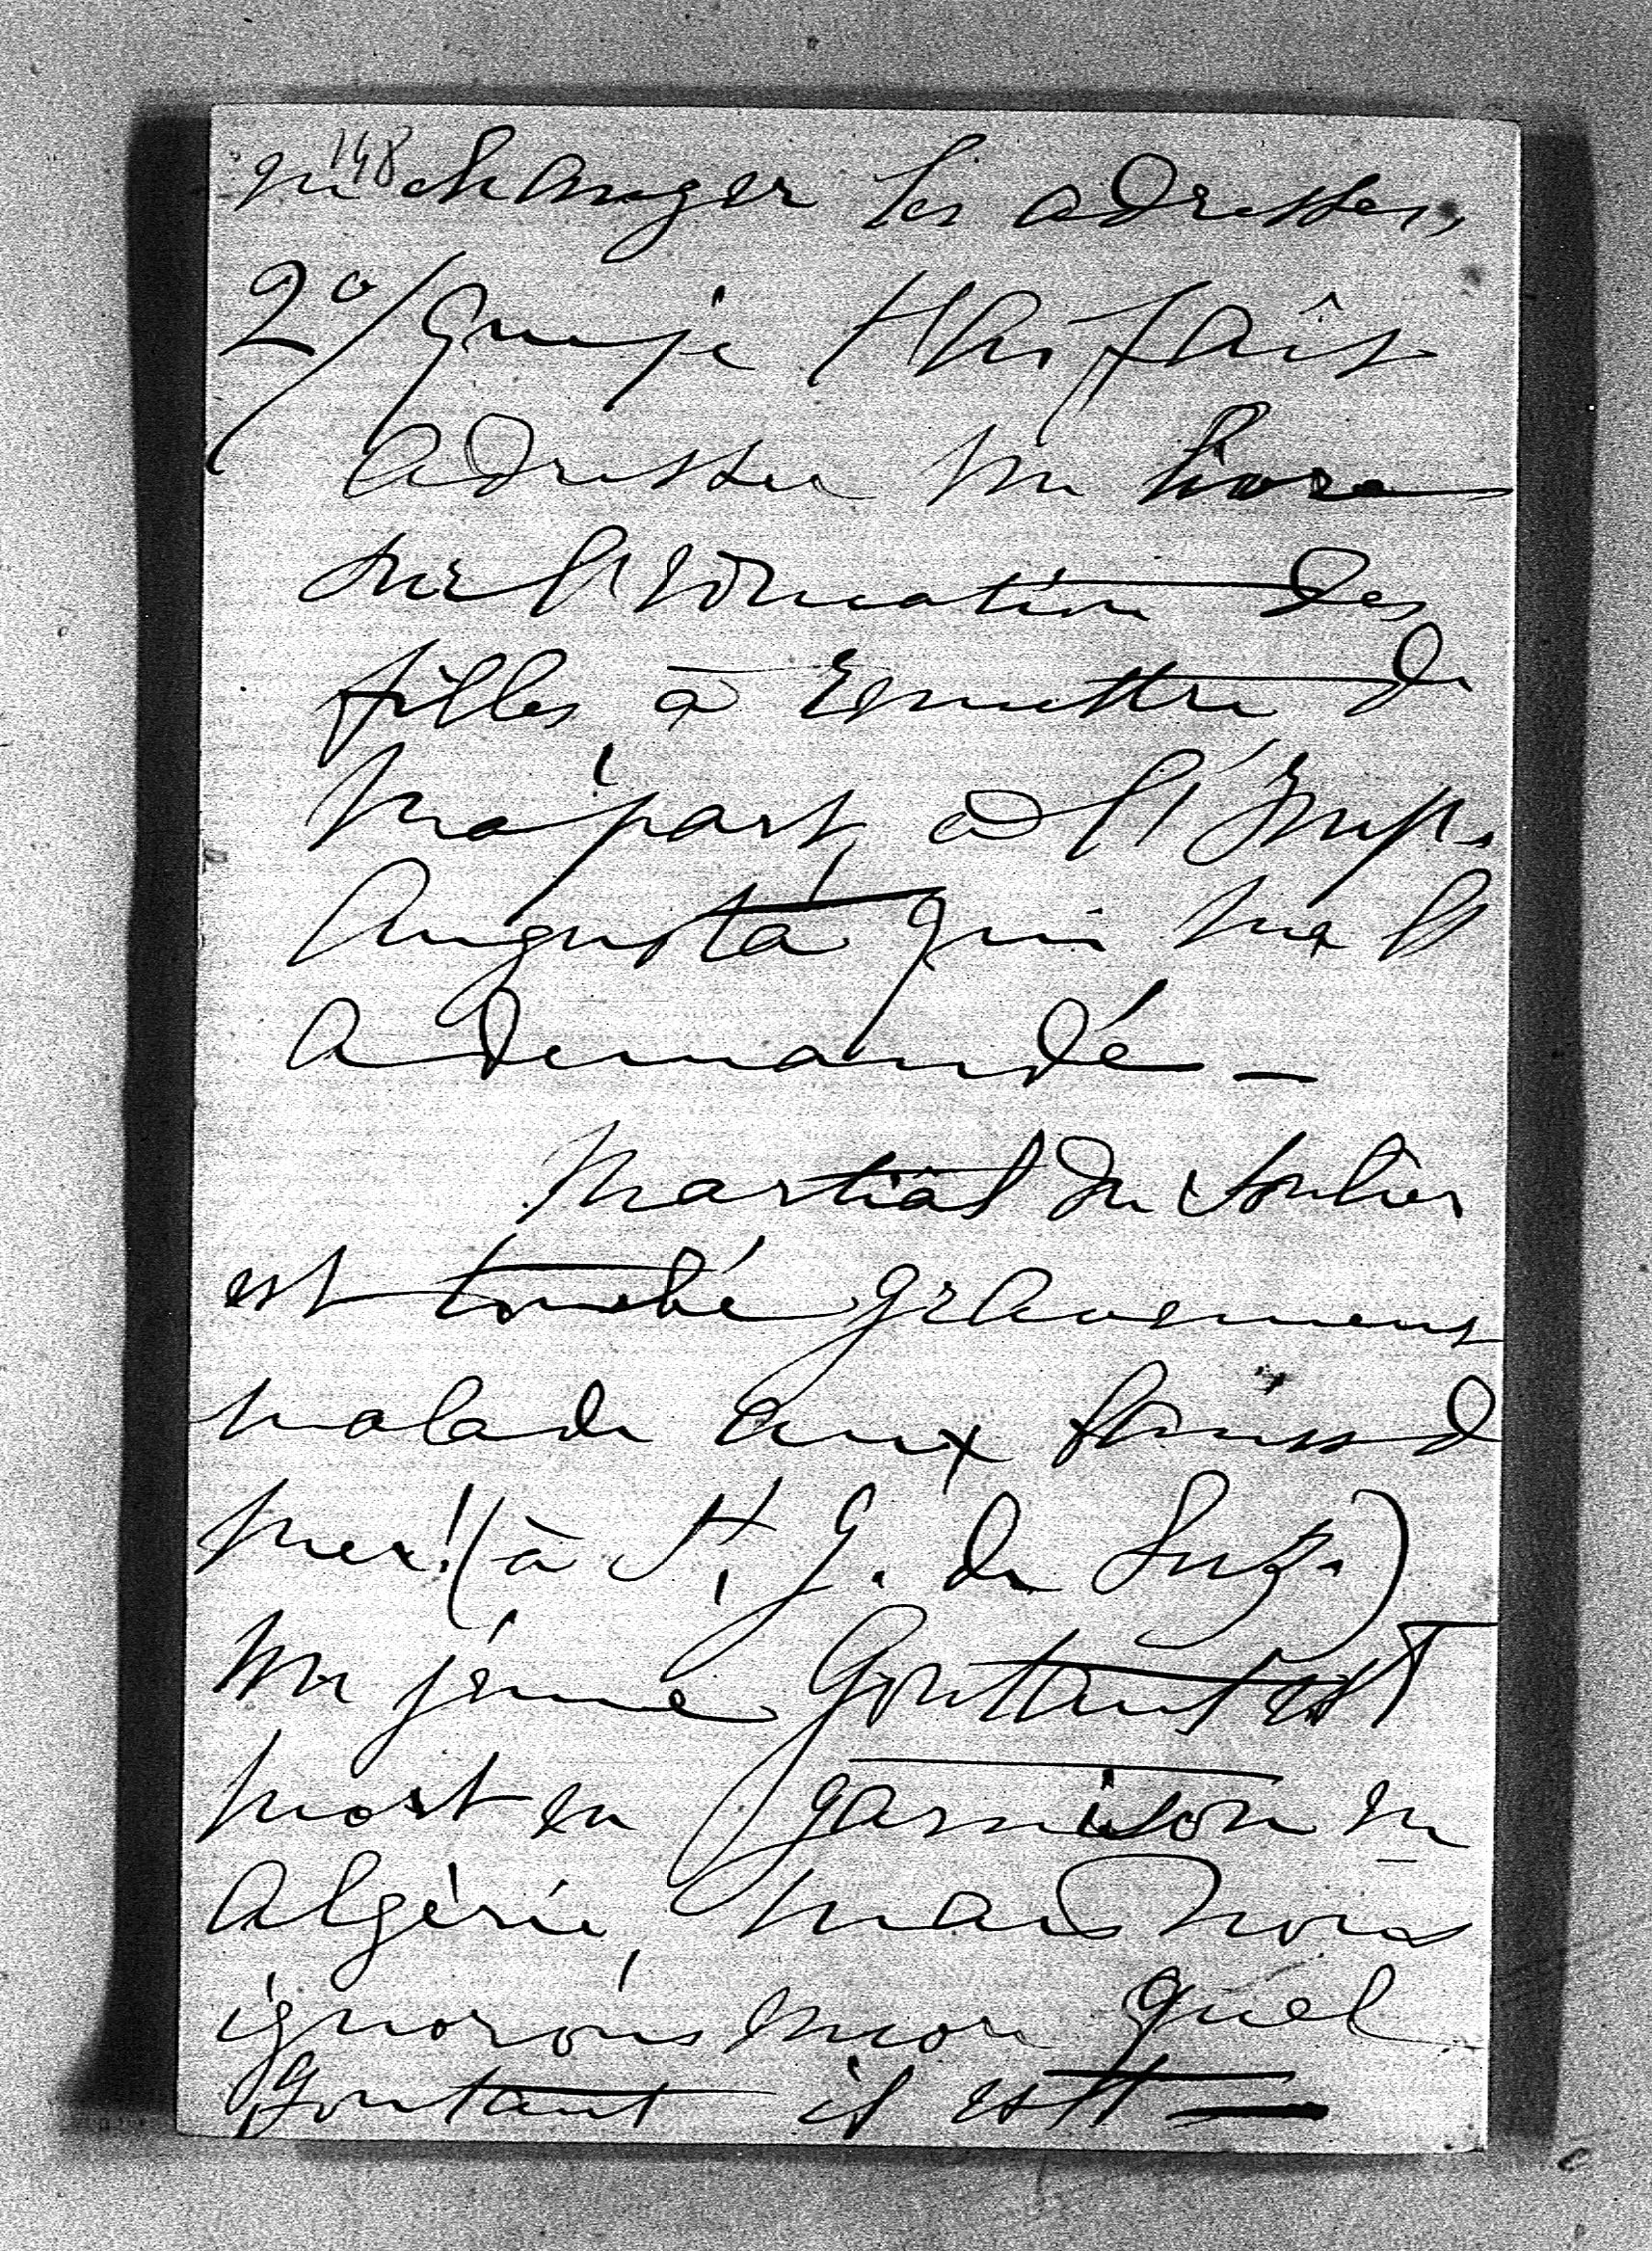 148
en changer les adresses,
2º/ que je t'ai fait
adresser un livre
sur l'éducation des
filles à remettre de
ma part à l'Imp.
Augusta qui me l'
a demandé —
Martial du Soulier
est tombé gravement
malade aux bains de
mer! (à St. J. de Luz.)
Un jeune Gontaut est
mort en garnison en
Algérie, mais nous
ignorons encore quel
Gontaut il est —